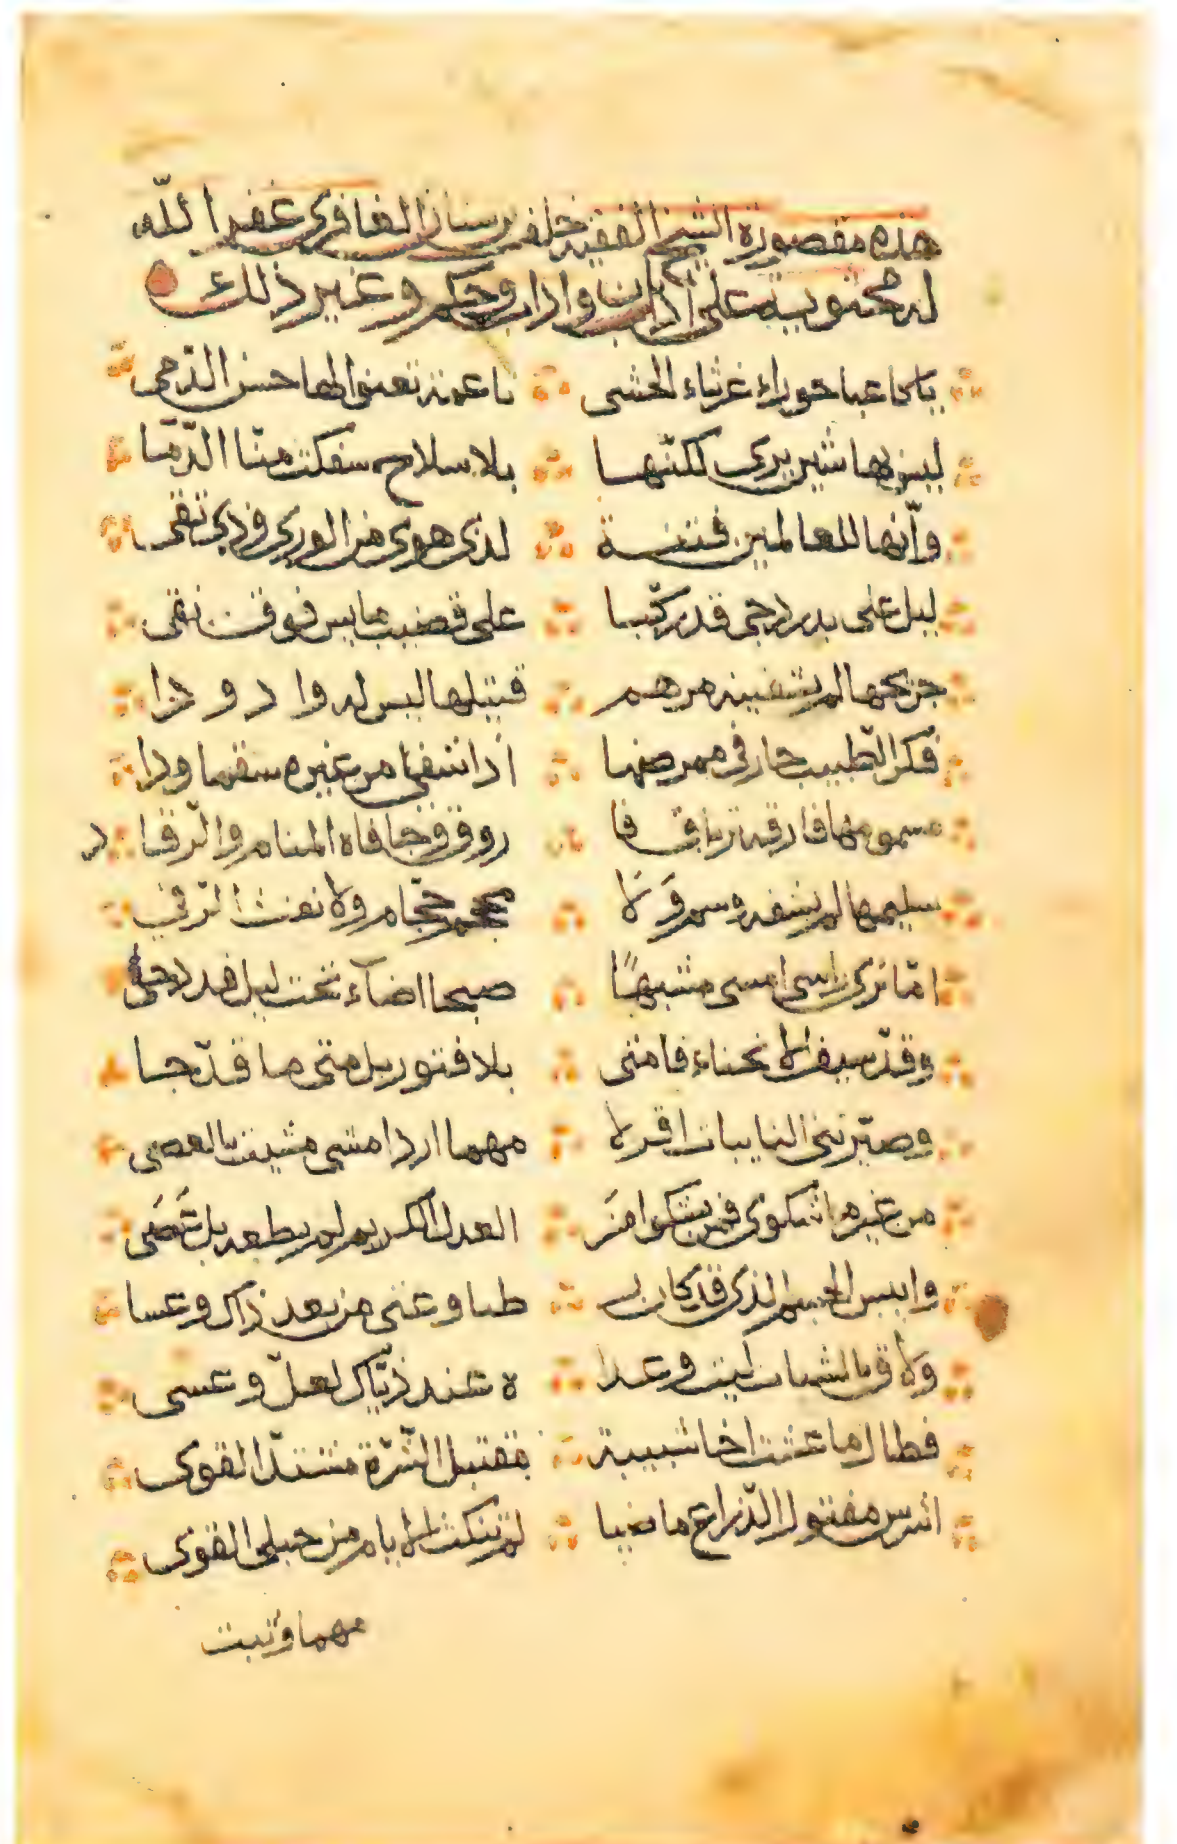 هذه مقصورة الشيخ الفقيه خلف بن سنان الغافري غفر الله
له محتوية على اديان واداب وحكم وغير ذلك
يا كاعبا حوراء غرثاء الحشى ناعمة تعنوا لها حسن الدمى
ليس بها شين يرى لكنها بلا سلاح سفكت منا الدما
وانها للعالمين فتنة لذي هوى من الورى وذي تقى
ليل على بدر دجى قد ركبا على قضيب مايس فوق نقى
جريحها لم يشفينه مرهم قتيلها ليس له وا د و دا
فكر الطبيب حار في ممرضها اذا شفى من غيره سقما ودا
مسمومها فارقه ترياق فا روق وجافاه المنام والرقا
سليمها لم يشفه وسم ولا محجم حجام ولا نفث الرقى
اما تري راسي امسى مشبها صبحا اضاء تحت ليل قد دجى
وقد سيف الانحناء قامتي بلا فتور بل متى ما قد جسا
وصيرتني النايبات اقزلا مهما ارد امشي مشيت بالعصى
من غيرها شكوى فمن يشكو امرء العدل الكريم لم يطعه بل عصى
وايبس الجسم الذي قد كان رطبا وعنى من بعد ذاك وعسا
ولا في بالشباب ليت وعدا ه عند ذياك لعل وعسى
فطال ما عشت اخا شبيبة مقتبل الشرة مشتد القوى
اشرس مفتول الذراع ماضيا لم تنكث الايام من حبلي القوى
مهما وثبت